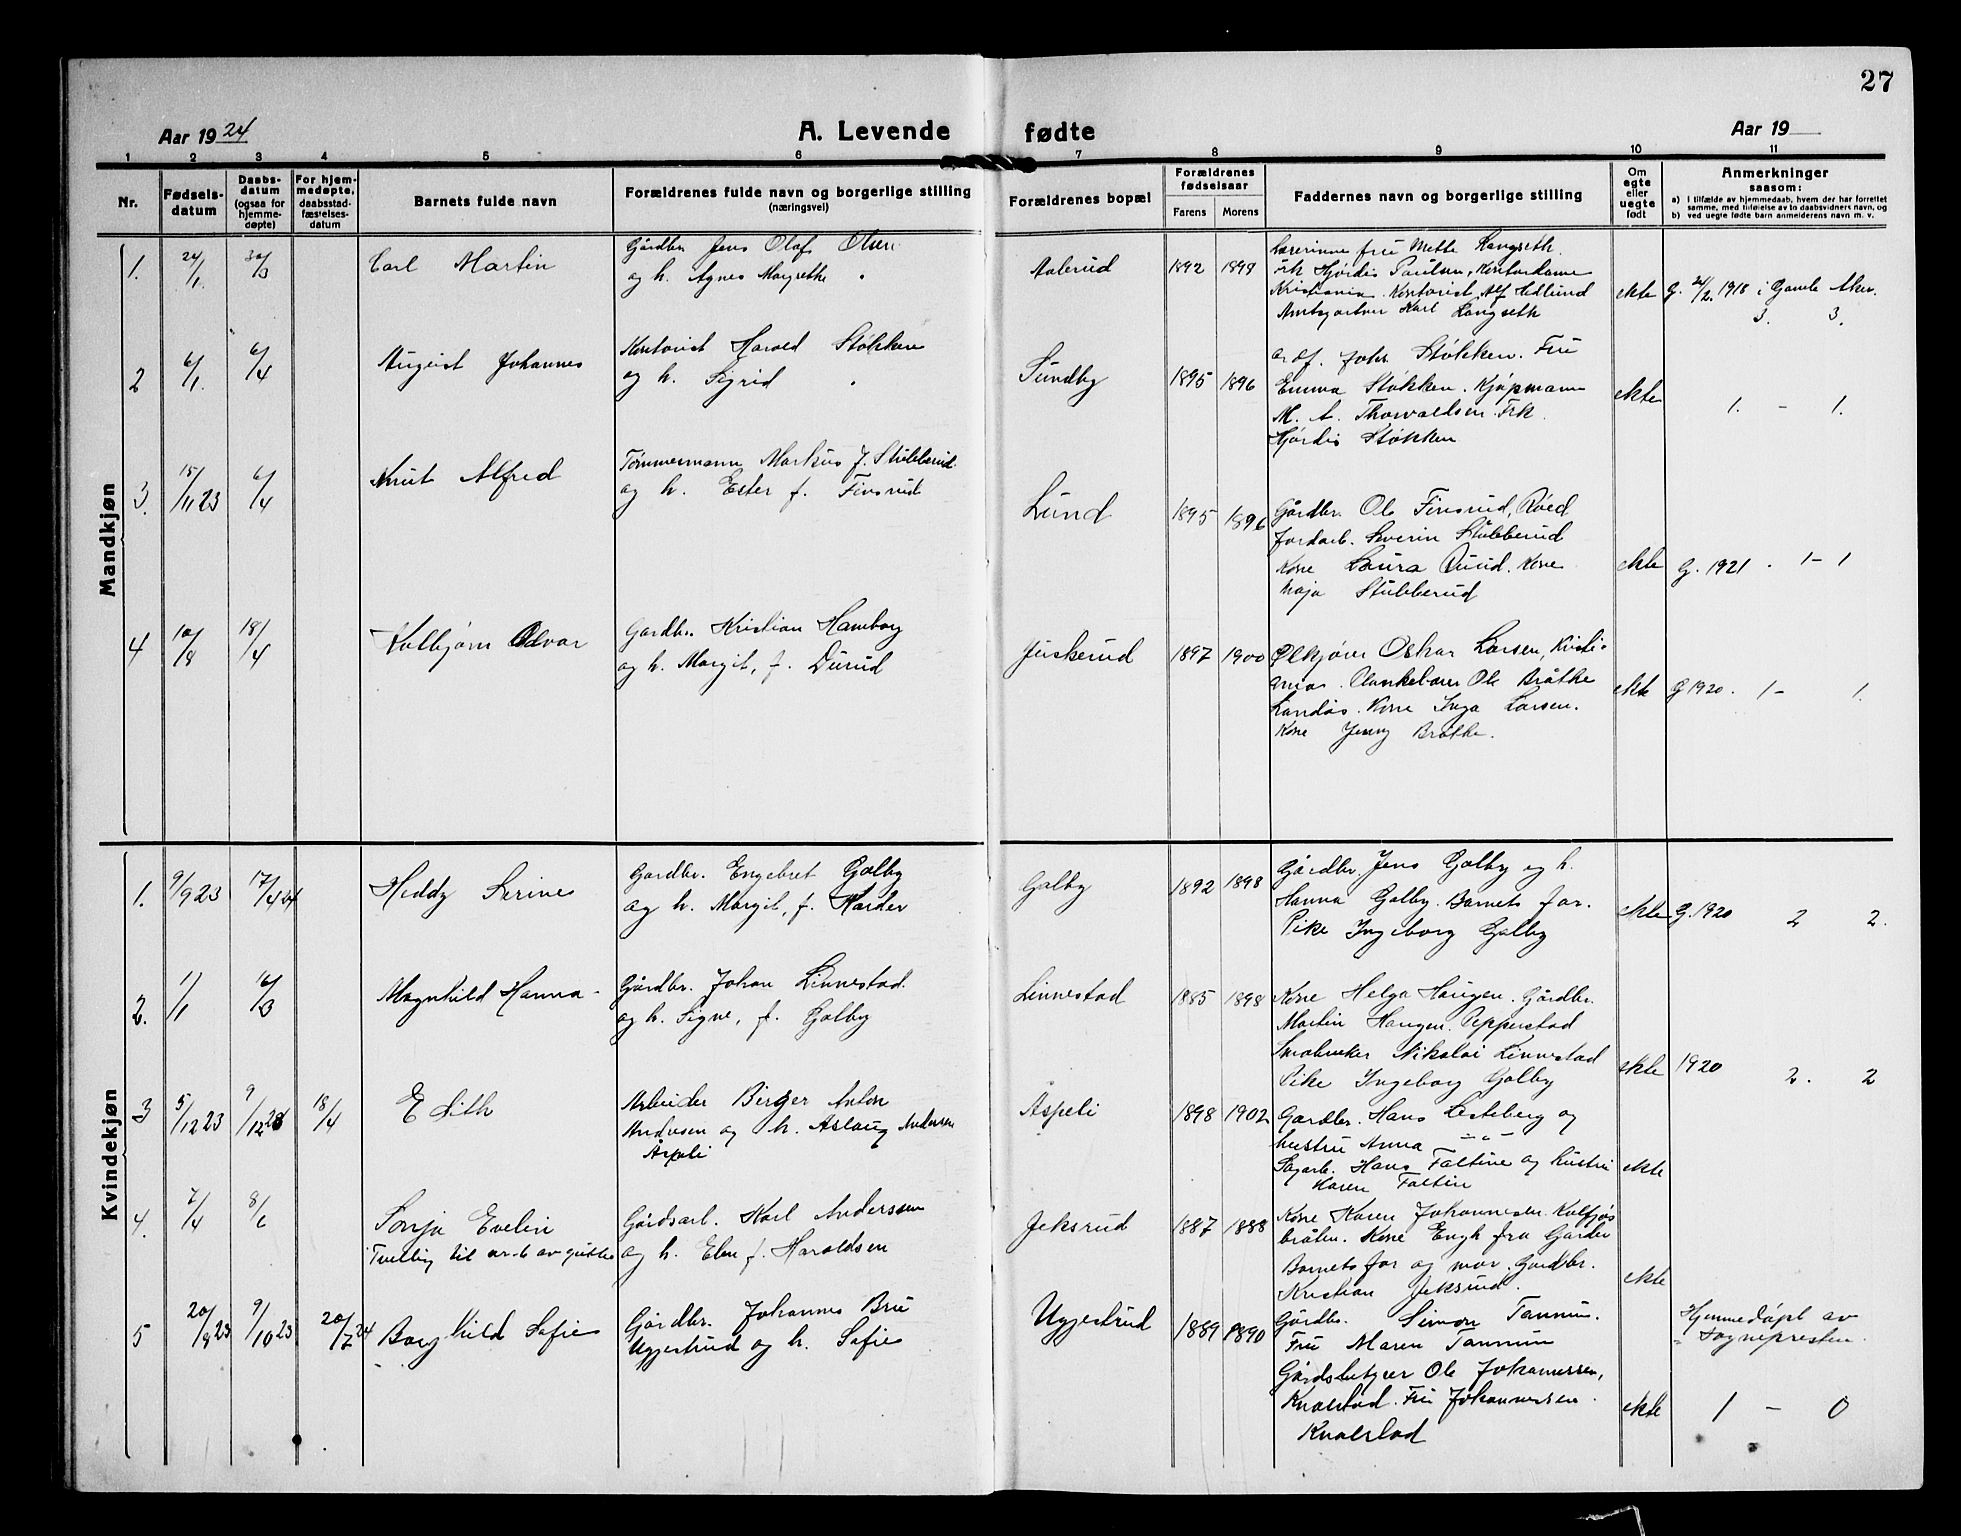 27
Aar 1924
A. Levende fødte
Aar 19
1 2 3 4 5 6 7 8 9 10 11
Nr.
Fødselsdatum
Daabsdatum (ogsaa for hjemmedøpte)
For hjemmedøpte, daabsstadfæstelsesdatum
Barnets fulde navn
Forældrenes fulde navn og borgerlige stilling
(næringsvei)
Forældrenes bopæl
Forældrenes fødselsaar
Farens Morens
Faddernes navn og borgerlige stilling
Om egte eller uegte født
Anmerkninger
saasom:
a) i tilfælde av hjemmedaab, hvem der har forrettet samme, med tilføielse av to daabsvidners navn, og
b) ved uegte fødte barn anmelderens navn m. v.
Mandkjøn
1. 24/1. 30/3 Carl Martin
Gårdbr. Jens Olaf Olsen
og h. Agnes Margrethe "
Aalerud 1892 1898
Lærerinne fru Mette Langseth
frk Hjördis Paulsen, Kontordame
Kristiania. Kontorist Alf Hedlund
Amtsgartner Karl Langseth
ekte G. 24/2. 1918 i Gamle Aker.
3. 3.
2 6/1. 6/4 August Johannes
Kontorist Harald Stökken
og h. Sigrid "
Sundby 1895 1896
Johs. Stökken. Fru
Emma Stökken. Kjöpmann
M. A. Thorvaldsen. Frk.
Hjördis Stökken
ekte 1. - 1.
3. 15/11 23 6/4 Knut Alfred
Tömmermann Markus J. Stubberud
og h. Ester f. Finsrud
Lund 1895 1896
Gårdbr. Ole Finsrud, Röed
Jordarb. Severin Stubberud
Kone Laura Duud. Kone
Maja Stubberud
ekte G. 1921. 1-1
4 10/8 18/4 Kolbjörn Odvar
Gardbr. Kristian Hamborg
og h. Margit, f. Durud
Juskerud 1897 1900
Ölkjörer Oskar Larsen, Kristi-
ania. Plankebærer Ole Bråthe
Landös. Kone Inga Larsen.
Kone Jenny Bråthe.
ekte G 1920. 1- 1.
Kvindekjøn
1. 9/9 23 17/4 24 Heddy Serine
Gardbr. Engebret Galby
og h. Margit, f. Harder
Galby 1892 1898
Gårdbr. Jens Galby og h.
Hanna Galby. Barnets far.
Pike Ingeborg Galby
ekte G. 1920 2 2.
2. 1/1 16/3 Magnhild Hanna
Gårdbr. Johan Linnestad.
og h. Signe, f. Galby
Linnestad 1885 1898
Kone Helga Haugen. Gårdbr.
Martin Haugen. Pepperstad
Småbruker Nikolai Linnestad
Pike Ingeborg Galby
ekte 1920 2. 2
3 5/12 23 9/12 23 18/4 Edith
Arbeider Birger Anton
Andersen og h. Aslaug Andersen
Aspeli
Aspeli 1898 1902
Gardbr. Hans Lesteberg og
hustru Anna — " —
Sagarb. Hans Faltine og hustru
Karen Faltin
ekte
4. 7/4 8/6 Sonja Evelin
Tvilling til nr. 6 av gutte
Gårdsarb. Karl Anderssen
og h. Elen f. Haraldsen
Jeksrud 1887 1888
Kone Karen Johannesen. Kolfjös
bråten. Kone Engh fra Garder
Barnets far og mor. Gardbr.
Kristian Jeksrud.
ekte
5 20/8 23 9/10 23 20/7 24 Borghild Sofie
Gårdbr. Johannes Bru
Uggestrud og h. Sofie
Uggestrud 1889 1890
Gårdbr. Simon Tannum.
Fru Maren Tannum
Gårdsbetyrer Ole Johannessen,
Knalstad. Fru Johannessen.
Knalstad
ekte Hjemmedöpt av
sognepresten.
1 - 0